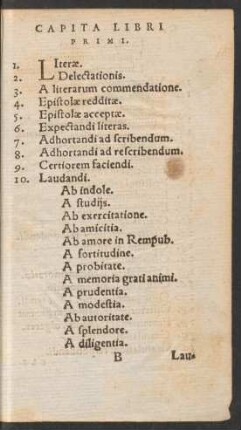 CAPITA LIBRI
PRIMI.
1. LIteræ.
2. Delectationis.
3. A literarum commendatione.
4. Epistolæ redditæ.
5. Epistolæ acceptæ.
6. Expectandi literas.
7. Adhortandi ad scribendum.
8. Adhortandi ad rescribendum.
9. Certiorem faciendi.
10. Laudandi.
Ab indole.
A studijs.
Ab exercitatione.
Ab amicitia.
Ab amore in Rempub.
A fortitudine.
A probitate.
A memoria grati animi.
A prudentia.
A modestia.
Ab autoritate.
A splendore.
A diligentia.
B Lau-